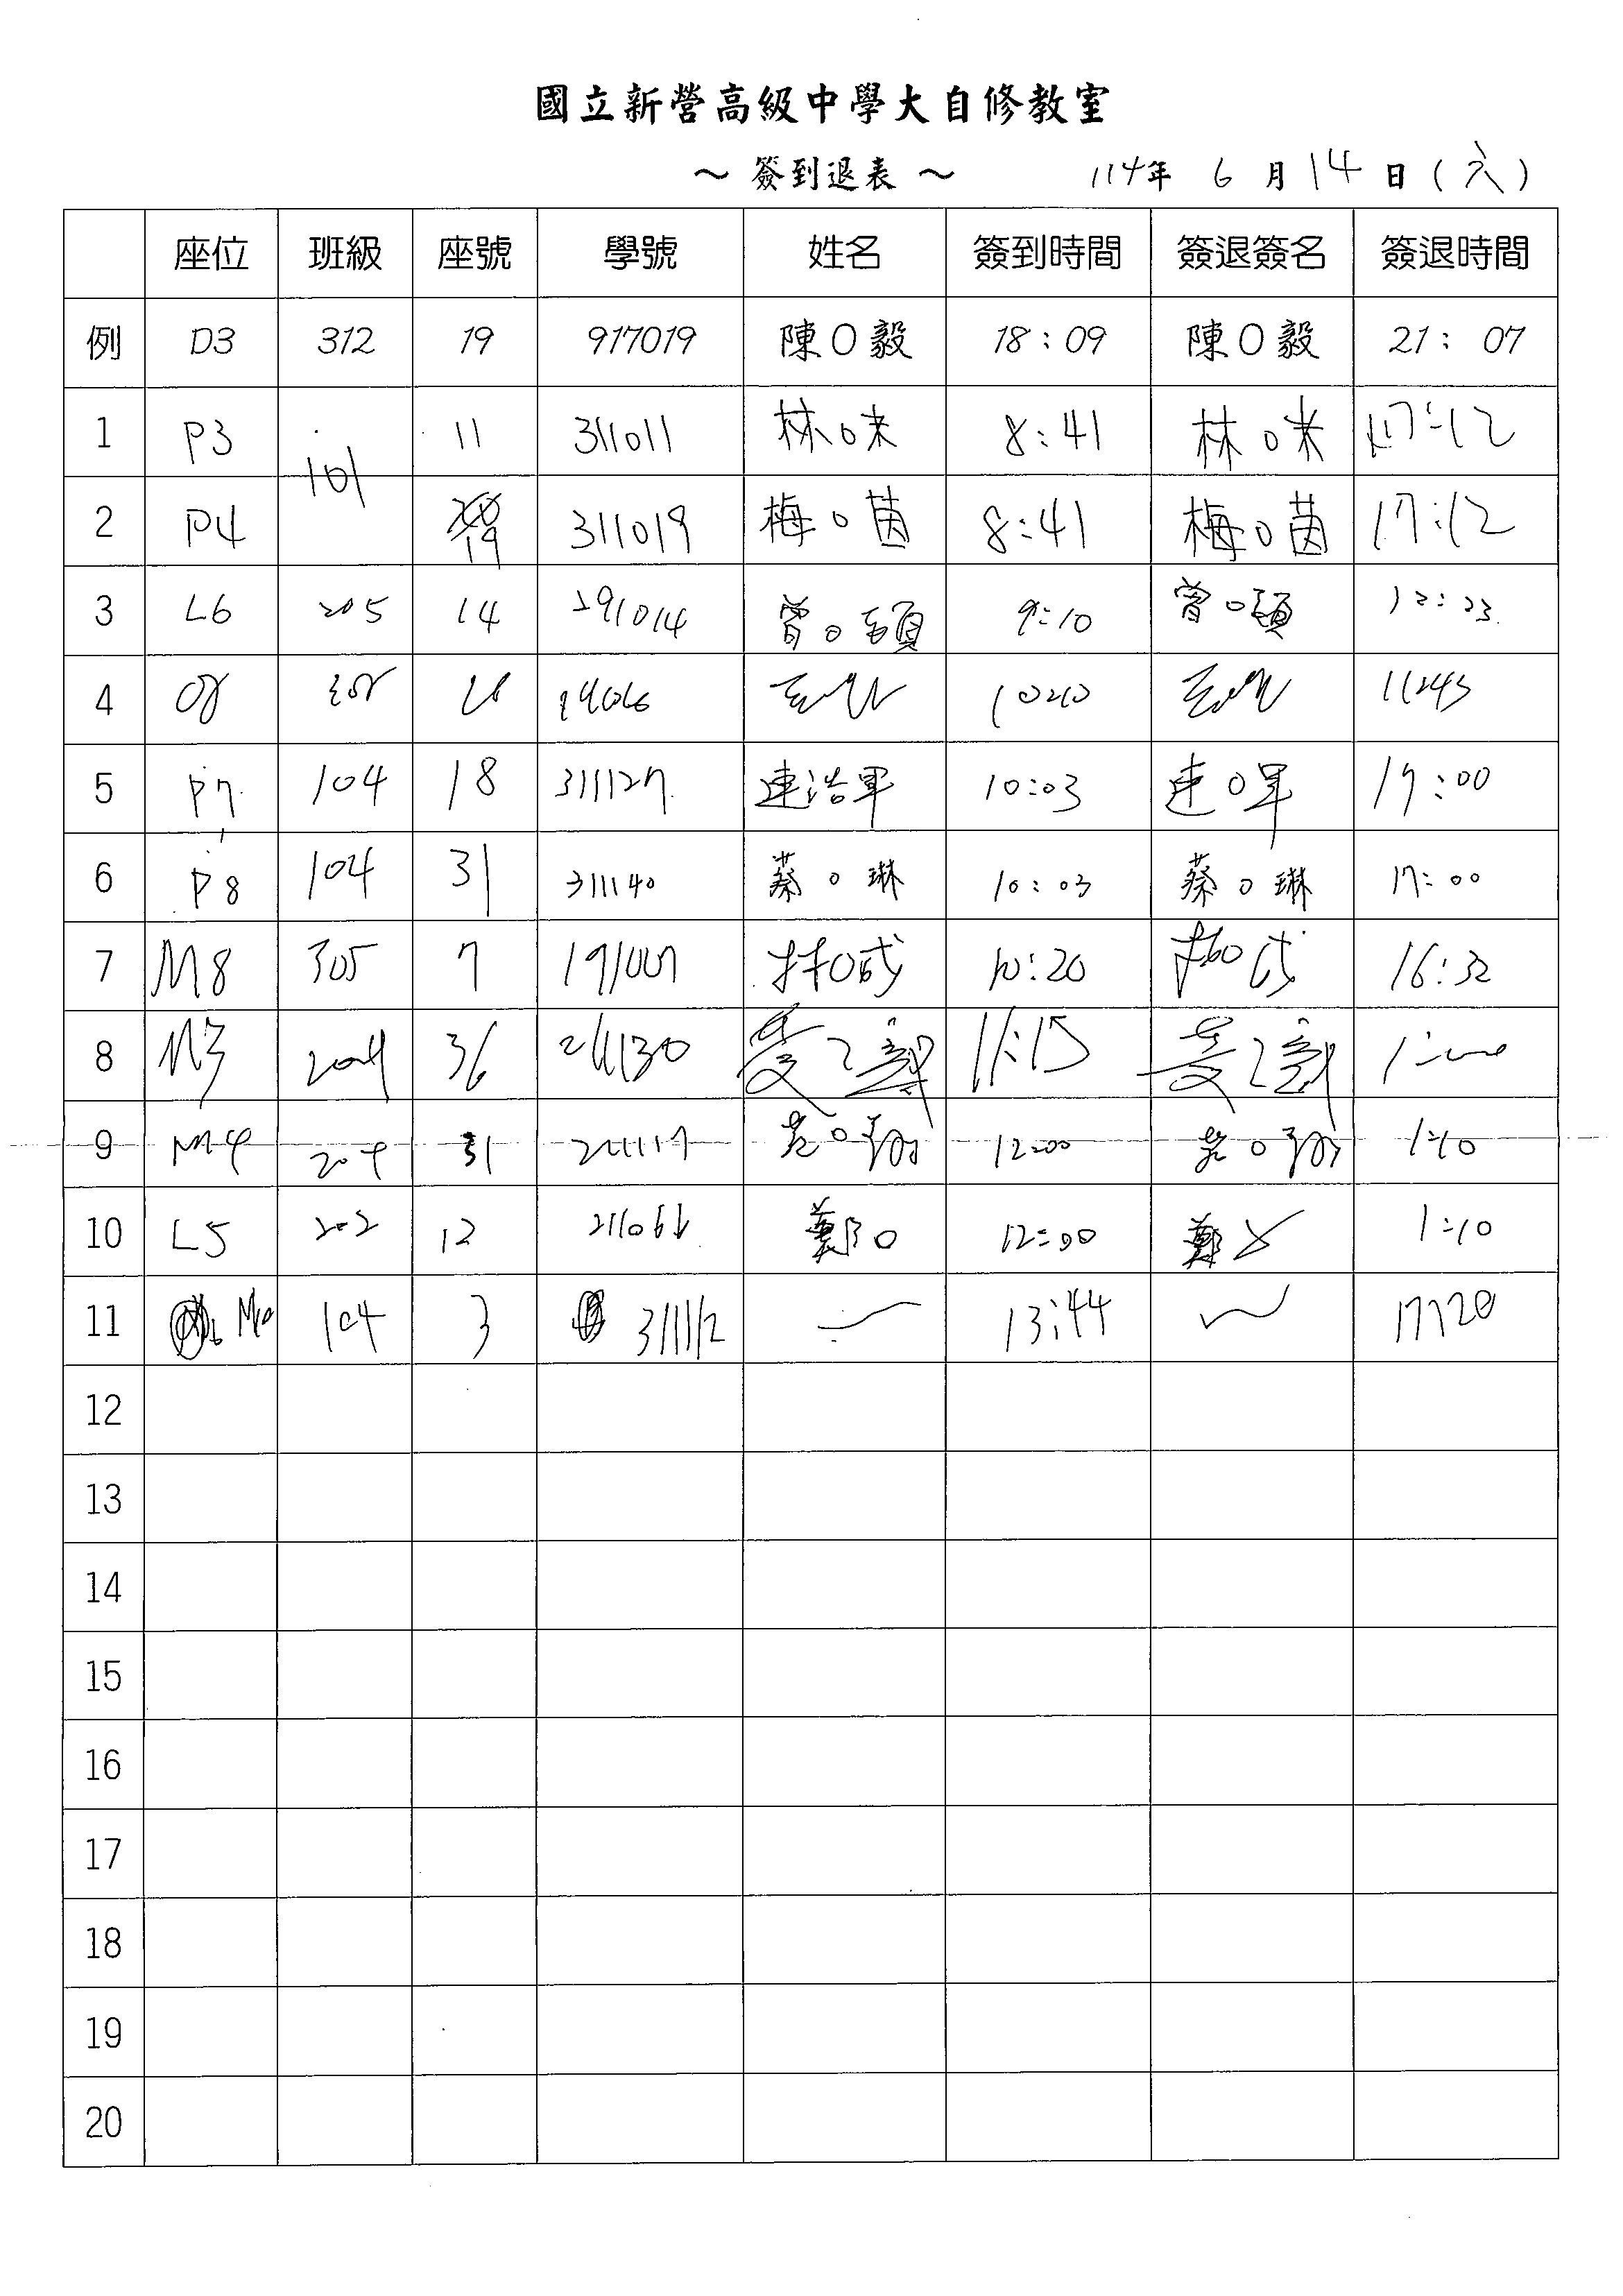 國立新營高級中學大自修教室
～ 簽到退表 ～ 114年 6 月 14 日 (六)
座位 班級 座號 學號 姓名 簽到時間 簽退簽名 簽退時間
例 D3 312 19 917019 陳O毅 18：09 陳O毅 21： 07
1 P3 101 11 311011 林O 8:41 林O 17:12
2 P4 19 311019 梅O茵 8:41 梅O茵 17:12
3 L6 205 14 291014 曾O 9:10 曾O
4 1020 11243
5 P7 104 18 311127 連浩軍 10:03 連O軍 17:00
6 P8 104 31 311140 蔡O琳 10:03 蔡O琳 17:00
7 M8 305 7 191007 林O成 10:20 16:32
8 204 36 211130 11:15
9 M4 204 31 211117 12:00 1:10
10 L5 202 12 鄭O 12:00 鄭 1:10
11 M10 104 3 311112 13:44 17720
12
13
14
15
16
17
18
19
20